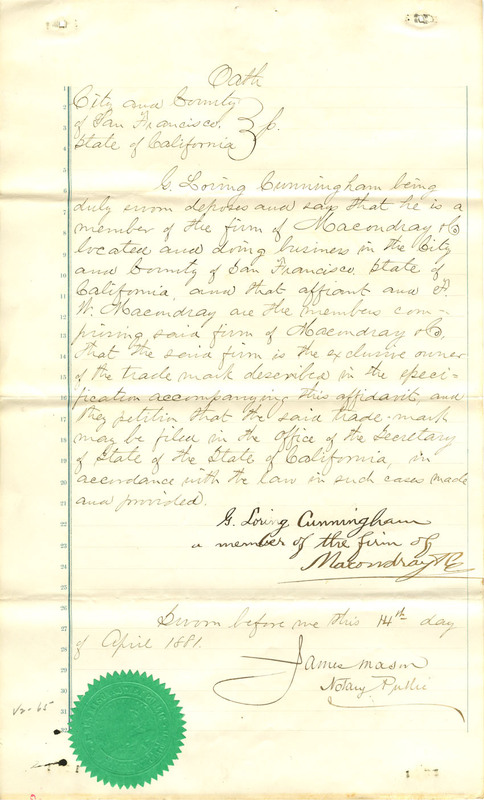 Oath
City and County
of San Francisco. } ss.
State of California
G. Loring Cunningham being
duly sworn deposes and says that he is a
member of the firm of Macondray & Co
located and doing business in the City
and County of San Francisco. State of
California, and that affiant and F.
W. Macondray are the members com-
prising said firm of Macondray & Co,
that the said firm is the exclusive owner
of the trade mark described in the speci-
fication accompanying this affidavit, and
they petition that the said trade-mark
may be filed in the Office of the Secretary
of State of the State of California, in
accordance with the law in such cases made
and provided.
G. Loring Cunningham
a member of the firm of
Macondray & Co
Sworn before me this 14th day
of April 1881.
James Mason
Notary Public